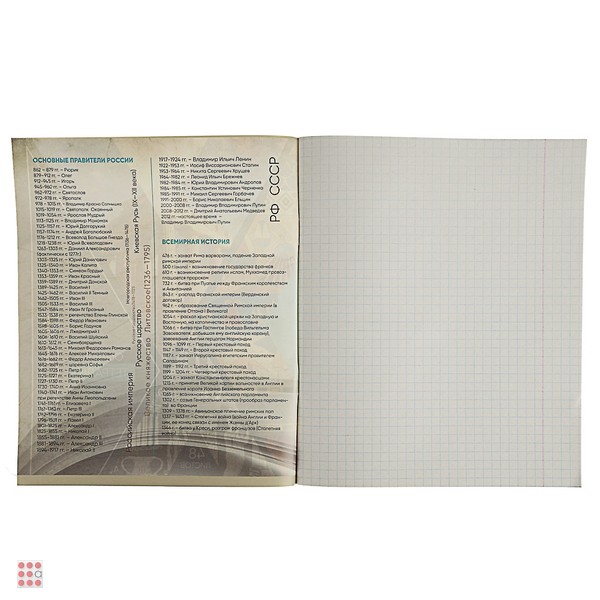 ОСНОВНЫЕ ПРАВИТЕЛИ РОССИИ
862 – 879 гг. – Рюрик
879–912 гг. – Олег
912–945 гг. – Игорь
945–960 гг. – Ольга
962–972 гг. – Святослав
972–978 гг. – Ярополк
978 – 1015 гг. – Владимир Красно Солнышко
1015–1019 гг. – Святополк Окаянный
1019–1054 гг. – Ярослав Мудрый
1113–1125 гг. – Владимир Мономах
1125–1157 гг. – Юрий Долгорукий
1157–1174 гг. – Андрей Боголюбский
1176–1212 гг. – Всеволод Большое Гнездо
1218–1238 гг. – Юрий Всеволодович
1263–1303 гг. – Даниил Александрович
(фактически с 1277г.)
1303–1325 гг. – Юрий Данилович
1325–1340 гг. – Иван Калита
1340–1353 гг. – Симеон Гордый
1353–1359 гг. – Иван Красный
1359–1389 гг. – Дмитрий Донской
1389–1425 гг. – Василий I
1425–1462 гг. – Василий II Темный
1462–1505 гг. – Иван III
1505–1533 гг. – Василий III
1547–1584 гг. – Иван IV Грозный
1533–1538 гг. – регентство Елены Глинской
1584–1598 гг. – Федор Иванович
1598–1605 гг. – Борис Годунов
1605–1606 гг. – Лжедмитрий I
1606–1610 гг. – Василий Шуйский
1610–1612 гг. – Семибоярщина
1613–1645 гг. – Михаил Федорович Романов
1645–1676 гг. – Алексей Михайлович
1676–1682 гг. – Федор Алексеевич
1682–1689 гг. – царевна Софья
1682–1725 гг. – Петр I
1725–1727 гг. – Екатерина I
1727–1730 гг. – Петр II
1730–1740 гг. – Анна Иоанновна
1740–1741 гг. – Иван Антонович
при регентстве Анны Леопольдовны
1741–1761 гг. – Елизавета I
1761–1762 гг. – Петр III
1762–1796 гг. – Екатерина II
1796–1801 гг. – Павел I
1801–1825 гг. – Александр I
1825–1855 гг. – Николай I
1855–1881 гг. – Александр II
1881–1894 гг. – Александр III
1894–1917 гг. – Николай II
Киевская Русь (IX–XII века)
Русское царство
Российская империя
Великое княжество Литовское(1236–1795)
1917–1924 гг. – Владимир Ильич Ленин
1922–1953 гг. – Иосиф Виссарионович Сталин
1953–1964 гг. – Никита Сергеевич Хрущев
1964–1982 гг. – Леонид Ильич Брежнев
1982–1984 гг. – Юрий Владимирович Андропов
1984–1985 гг. – Константин Устинович Черненко
1985–1991 гг. – Михаил Сергеевич Горбачев
1991–2000 гг. – Борис Николаевич Ельцин
2000–2008 гг. – Владимир Владимирович Путин
2008–2012 гг. – Дмитрий Анатольевич Медведев
2012 гг.–настоящее время –
Владимир Владимирович Путин
РФ СССР
ВСЕМИРНАЯ ИСТОРИЯ
476 г. – захват Рима варварами, падение Западной
римской империи
500 г.(около) – возникновение государства франков
610 г. – возникновение религии ислам, Мухаммед провоз-
732 г. – битва при Пуатье между Франкским королевством
843 г. – распад Франкской империи (Верденский
договор)
962 г. – образование Священной Римской империи (в
правление Оттона I Великого)
1054 г. – раскол христианской церкви на Западную и
Восточную, на католичество и православие
1066 г. – битва при Гастингсе (победа Вильгельма
Завоевателя, добывшая ему английскую корону),
завоевание Англии герцогом Нормандии
1096 – 1099 гг. – Первый крестовый поход
1147 – 1149 гг. – Второй крестовый поход
1187 г. – захват Иерусалима египетским правителем
Саладином
1189 – 1192 гг. – Третий крестовый поход
1199 – 1204 гг. – Четвертый крестовый поход
1204 г. – захват Константинополя крестоносцами
1215 г. – принятие Великой хартии вольностей в Англии в
правление короля Иоанна Безземельного
1265 г. – возникновение Английского парламента
1302 г. – созыв Генеральных штатов (прообраз парламен-
та) во Франции
1309 – 1378 гг. – Авиньонское пленение римских пап
1337 – 1453 гг. – Столетняя война (война Англии и Фран-
ции, ее конец связан с именем Жанны д'Арк)
1346 г. – битва у Креси, разгром французов (Столетняя
война)